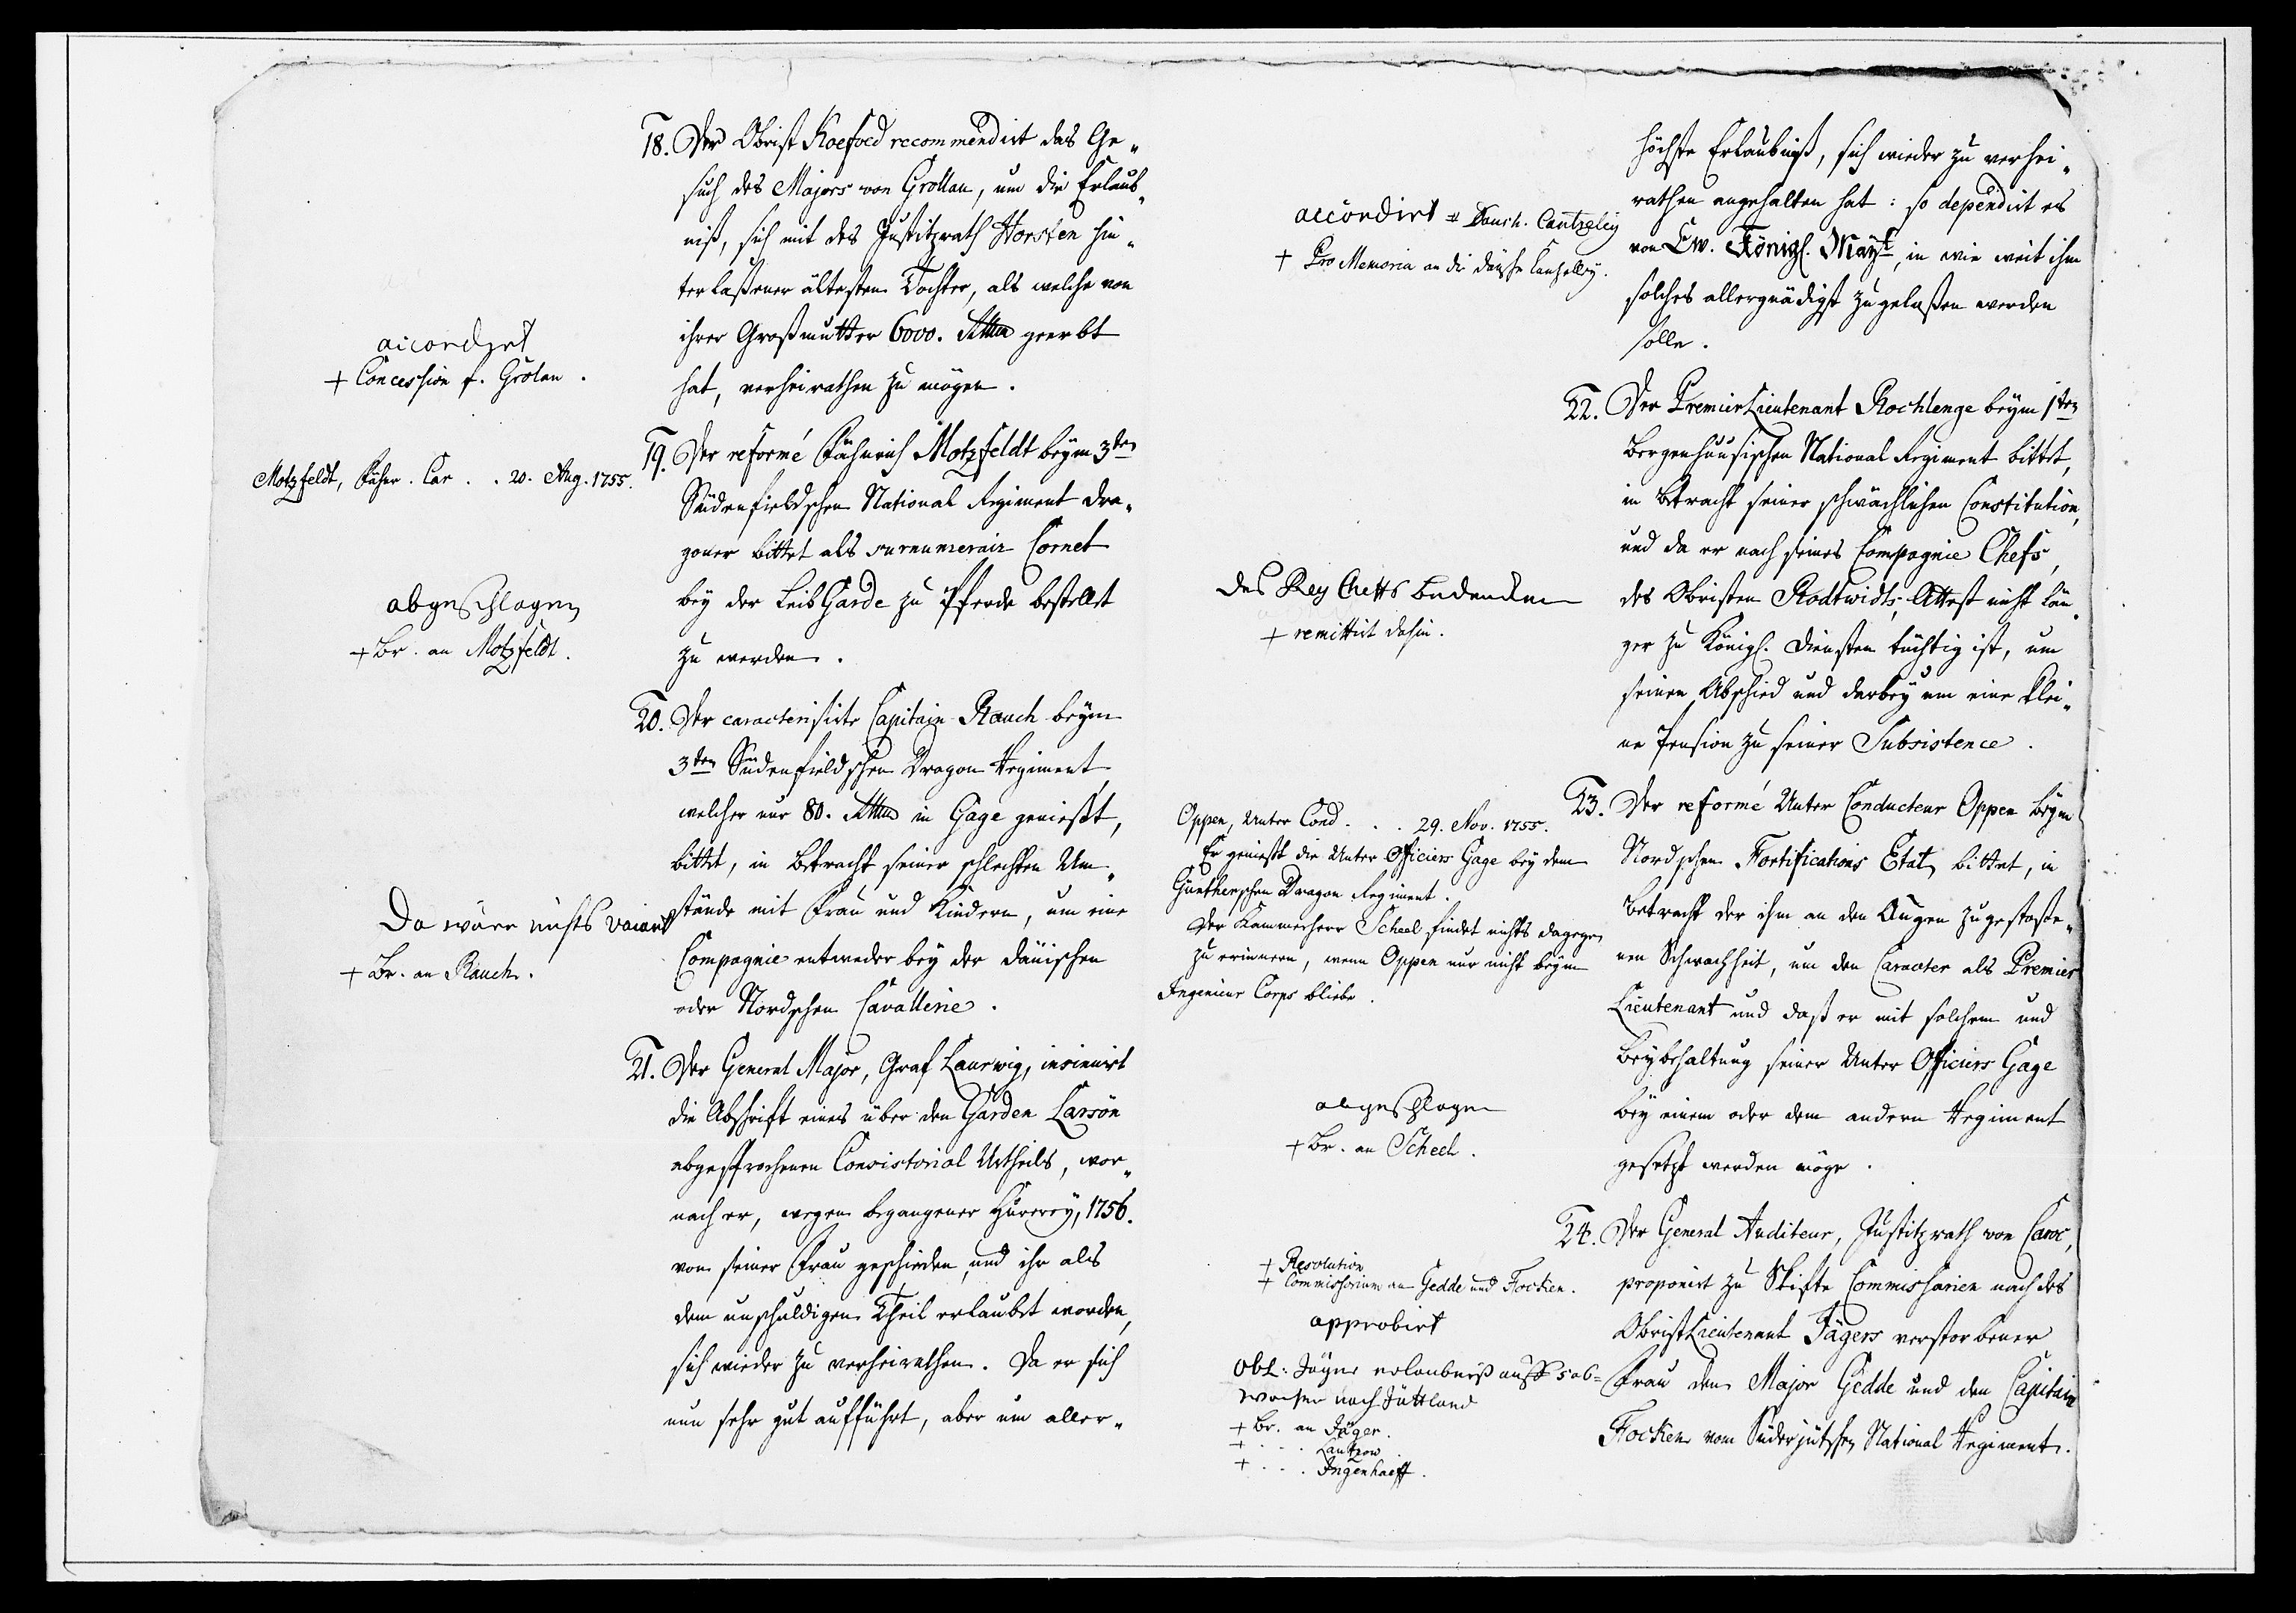 18. Der Obrist Koefoed recommendirt das Ge„
such des Majors von Grollau, um die Erlaub„
niß, sich mit des Justitzrath Horsten hin„
terlaßener ältesten Tochter, als welche von
ihrer Großmutter 6000. Rthlr geerbt
hat, verheirathen zu mögen.
accordirt
+ Concession f. Grolau.
19. Der reformé Fähnrich Motzfeldt beym 3ten
Südenfieldschen National Regiment Dra„
goner bittet als surnumerair Cornet
bey der Leib Garde zu Pferde bestellet
zu werden.
Motzfeldt, Fähnr. Car. . . 20. Aug. 1755.
abgeschlagen
+ Br. an Motzfeldt.
20. Der caracterisirte Capitain Rauch beym
3ten Südenfieldschen Dragon Regiment,
welcher nur 80. Rthlr in Gage genießt,
bittet, in Betracht seiner schlechten Um„
stände mit Frau und Kindern, um eine
Compagnie entweder bey der dänischen
oder Nordschen Cavallerie.
Da wäre nichts vacant
+ Br. an Rauch.
21. Der General Major, Graf Laurwig, insinuirt
die Abschrift eines über den Gárden Larsön
abgesprochenen Consistorial Urtheils, wor„
nach er, wegen begangener Hurerey, 1756.
von seiner Frau geschieden, und ihr als
dem unschuldigen Theil erlaubet worden,
sich wieder zu verheirathen. Da er sich
nun sehr gut aufführt, aber um aller„
höchste Erlaubniß, sich wieder zu verhei„
rathen angehalten hat: so dependirt es
von Ew. Königl. Mayt, in wie weit ihm
solches allergnädigst zugelaßen werden
solle.
accordirt Dansch. Cantzeley
+ Pro Memoria an die dänsche Canzelley.
22. Der Premier Lieutenant Rochlenge beym 1ten
Bergenhuusischen National Regiment bittet,
in Betracht seiner schwächlichen Constitution,
und da er nach seines Compagnie Chefs,
des Obristen Rodtwidts, Attest nicht län„
ger zu Königl. Diensten tüchtig ist, um
seinen Abschied und darbey um eine klei„
ne Pension zu seiner Subsistence.
des Reg Cheffs bedencken
+ remittirt dahin.
23. Der reformé Unter Conducteur Oppen beym
Nordschen Fortifications Etat, bittet, in
Betracht der ihm an den Augen zugestoße„
nen Schwachheit, um den Caracter als Premier
Lieutenant und daß er mit solchem und
Beybehaltung seiner Unter Officiers Gage
bey einem oder dem andern Regiment
gesetzt werden möge.
Oppen, Unter Cond. . . 29. Nov. 1755.
Er genießt die Unter Officiers Gage bey dem
Güntherschen Dragon Regiment.
Der Kammerherr Scheel findet nichts dagegen
zu erinnern, wenn Oppen nur nicht beym
Ingenieur Corps bliebe.
abgeschlagen
+ Br. an Scheel.
24. Der General Auditeur, Justitzrath von Caroc,
proponirt zu Skifte Commissarien nach des
Obrist Lieutenant Jägers verstorbener
Frau den Major Gedde und den Capitain
Focken vom Süderjütschen National Regiment.
+ Resolution
+ Commissorium an Gedde und Focken.
approbirt
Obl: Jäger erlaubniß auff 5 a 6=
wochen nach Jüttland
+ Br. an Jäger.
+ . . . Lantzow.
+ . . . Ingenhaeff.